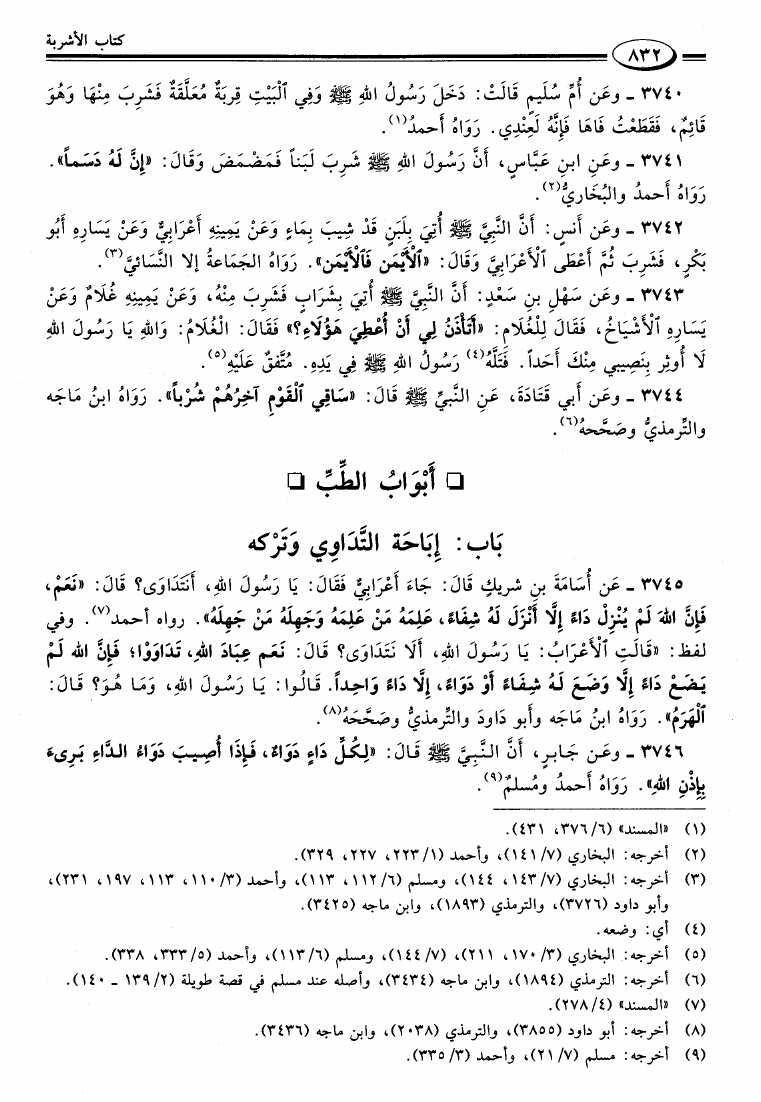 كتاب الأشربة
٨٣٢
٣٧٤٠ ـ وعَن أُمِّ سُلَيمٍ قَالَتْ: دَخَلَ رَسُولُ اللهِ ﷺ وَفِي ٱلْبَيْتِ قِرْبَةٌ مُعَلَّقَةٌ فَشَرِبَ مِنْهَا وَهُوَ
قَائِمٌ، فَقَطَعْتُ فَاهَا فَإِنَّهُ لَعِنْدِي. رَوَاهُ أَحمدُ(١).
٣٧٤١ ـ وعَنِ ابنِ عَبَّاسٍ، أَنَّ رَسُولَ اللهِ ﷺ شَرِبَ لَبَناً فَمَضْمَضَ وَقَالَ: «إِنَّ لَهُ دَسَماً».
رَوَاهُ أَحمدُ والبُخَاريُّ(٢).
٣٧٤٢ ـ وعَن أَنسٍ: أَنَّ النَّبِيَّ ﷺ أُتِيَ بِلَبَنٍ قَدْ شِيبَ بِمَاءٍ وَعَنْ يَمِينِهِ أَعْرَابِيٌّ وَعَنْ يَسَارِهِ أَبُو
بَكْرٍ، فَشَرِبَ ثُمَّ أَعْطَى ٱلْأَعْرَابِيَّ وَقَالَ: «ٱلْأَيْمَن فَٱلْأَيْمَن». رَوَاهُ الجَماعَةُ إلا النَّسائيَّ(٣).
٣٧٤٣ ـ وعَن سَهْلِ بنِ سَعْدٍ: أَنَّ النَّبِيَّ ﷺ أُتِيَ بِشَرَابٍ فَشَرِبَ مِنْهُ، وَعَنْ يَمِينِهِ غُلَامٌ وَعَنْ
يَسَارِهِ ٱلْأَشْيَاخُ، فَقَالَ لِلْغُلَامِ: «أَتَأْذَنُ لِي أَنْ أُعْطِيَ هَؤُلَاءِ؟» فَقَالَ: الْغُلَامُ: وَاللهِ يَا رَسُولَ اللهِ
لَا أُوثِر بِنَصِيبي مِنْكَ أَحَداً. فَتَلَّهُ(٤) رَسُولُ اللهِ ﷺ فِي يَدِهِ. مُتَّفقٌ عَلَيْهِ(٥).
٣٧٤٤ ـ وعَن أَبي قَتَادَةَ، عَنِ النَّبيِّ ﷺ قَالَ: «سَاقِي ٱلْقَوْمِ آخِرُهُمْ شُرْباً». رَوَاهُ ابنُ مَاجَه
والتِّرمذيُّ وصَحَّحهُ(٦).
❑ أَبْوَابُ الطِّبِّ ❑
بَاب: إِبَاحَة التَّدَاوِي وَتَرْكه
٣٧٤٥ ـ عَن أُسَامَةَ بنِ شريكٍ قَالَ: جَاءَ أَعْرَابِيٌّ فَقَالَ: يَا رَسُولَ اللهِ، أَنَتَدَاوَى؟ قَالَ: «نَعَمْ،
فَإِنَّ اللهَ لَمْ يُنْزِلْ دَاءً إِلَّا أَنْزَلَ لَهُ شِفَاءً، عَلِمَهُ مَنْ عَلِمَهُ وَجَهِلَهُ مَنْ جَهِلَهُ». رواه أحمد(٧). وفي
لفظ: «قَالَتِ ٱلْأَعْرَابُ: يَا رَسُولَ اللهِ، أَلَا نَتَدَاوَى؟ قَالَ: نَعَم عِبَادَ اللهِ، تَدَاوَوْا؛ فَإِنَّ الله لَمْ
يَضَعْ دَاءً إِلَّا وَضَعَ لَهُ شِفَاءً أَوْ دَوَاءً، إِلَّا دَاءً وَاحِداً. قَالُوا: يَا رَسُولَ اللهِ، وَمَا هُوَ؟ قَالَ:
ٱلْهَرَمُ». رَوَاهُ ابنُ مَاجَه وأَبو دَاودَ والترمذيُّ وصَحَّحَهُ(٨).
٣٧٤٦ ـ وعَن جَابرٍ، أَنَّ النَّبيَّ ﷺ قَالَ: «لِكُلِّ دَاءٍ دَوَاءٌ، فَإِذَا أُصِيبَ دَوَاءُ الدَّاءِ بَرِىءَ
بِإِذْنِ اللهِ». رَوَاهُ أَحمدُ ومُسلمٌ(٩).
(١) «المسند» (٣٧٦/٦، ٤٣١).
(٢) أخرجه: البخاري (١٤١/٧)، وأحمد (٢٢٣/١، ٢٢٧، ٣٢٩).
(٣) أخرجه: البخاري (١٤٣/٧، ١٤٤)، ومسلم (١١٢/٦، ١١٣)، وأحمد (١١٠/٣، ١١٣، ١٩٧، ٢٣١)،
وأبو داود (٣٧٢٦)، والترمذي (١٨٩٣)، وابن ماجه (٣٤٢٥).
(٤) أي: وضعه.
(٥) أخرجه: البخاري (١٧٠/٣، ٢١١)، (١٤٤/٧)، ومسلم (١١٣/٦)، وأحمد (٣٣٣/٥، ٣٣٨).
(٦) أخرجه: الترمذي (١٨٩٤)، وابن ماجه (٣٤٣٤)، وأصله عند مسلم في قصة طويلة (١٣٩/٢ ـ ١٤٠).
(٧) «المسند» (٢٧٨/٤).
(٨) أخرجه: أبو داود (٣٨٥٥)، والترمذي (٢٠٣٨)، وابن ماجه (٣٤٣٦).
(٩) أخرجه: مسلم (٢١/٧)، وأحمد (٣٣٥/٣).